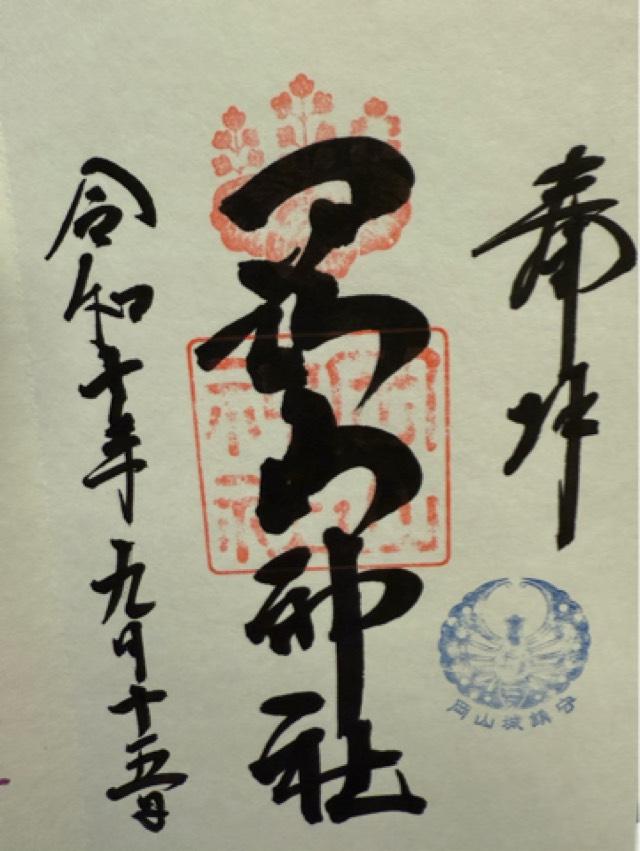 奉拝
岡山神社
岡山神社
令和十年九月十五日
岡山城鎮守